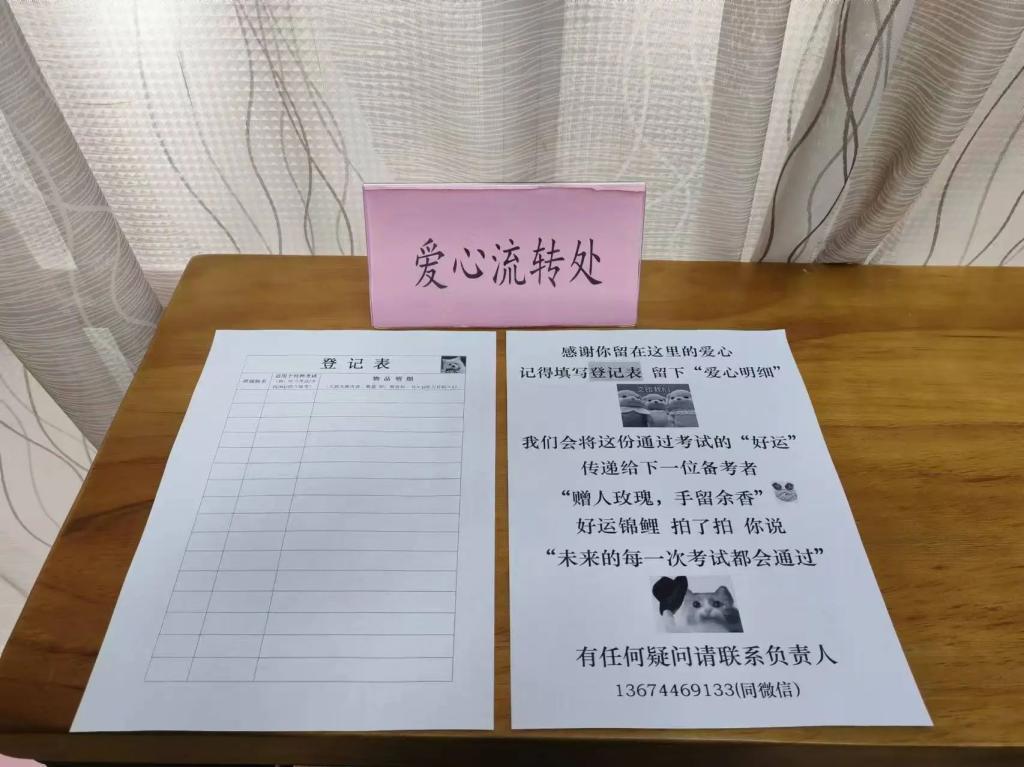 爱心流转处
登记表
班级姓名
适用于何种考试
物品明细
感谢你留在这里的爱心
记得填写登记表 留下“爱心明细”
我们会将这份通过考试的“好运”
传递给下一位备考者
“赠人玫瑰，手留余香”
好运锦鲤 拍了拍 你说
“未来的每一次考试都会通过”
有任何疑问请联系负责人
13674469133(同微信)